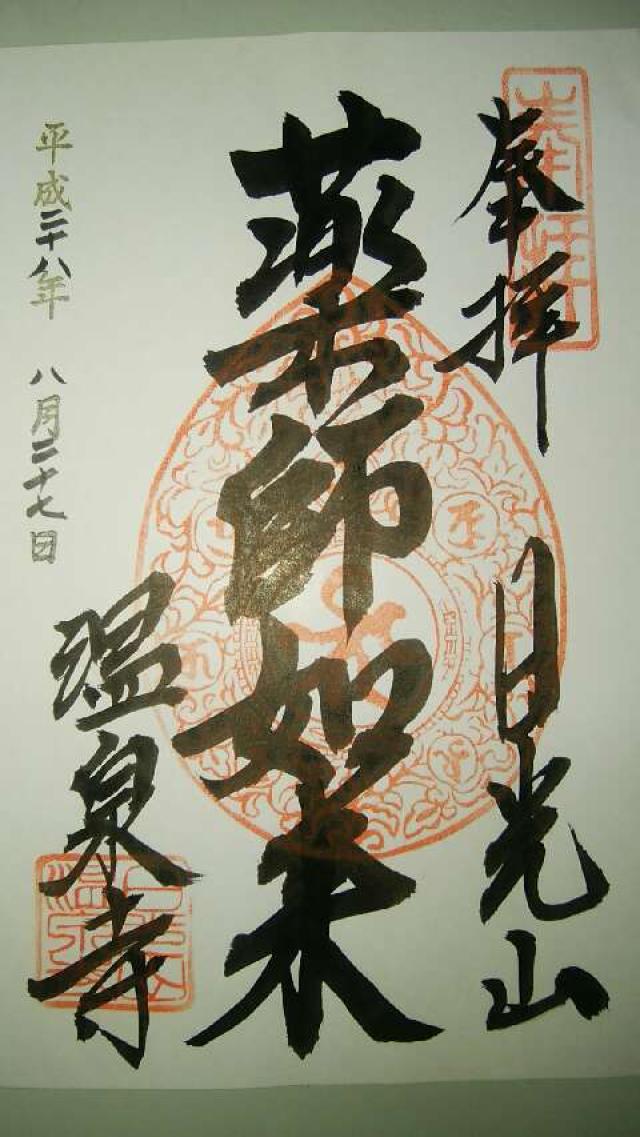 奉拝
日光山
薬師如来
温泉寺
平成二十八年 八月二十七日